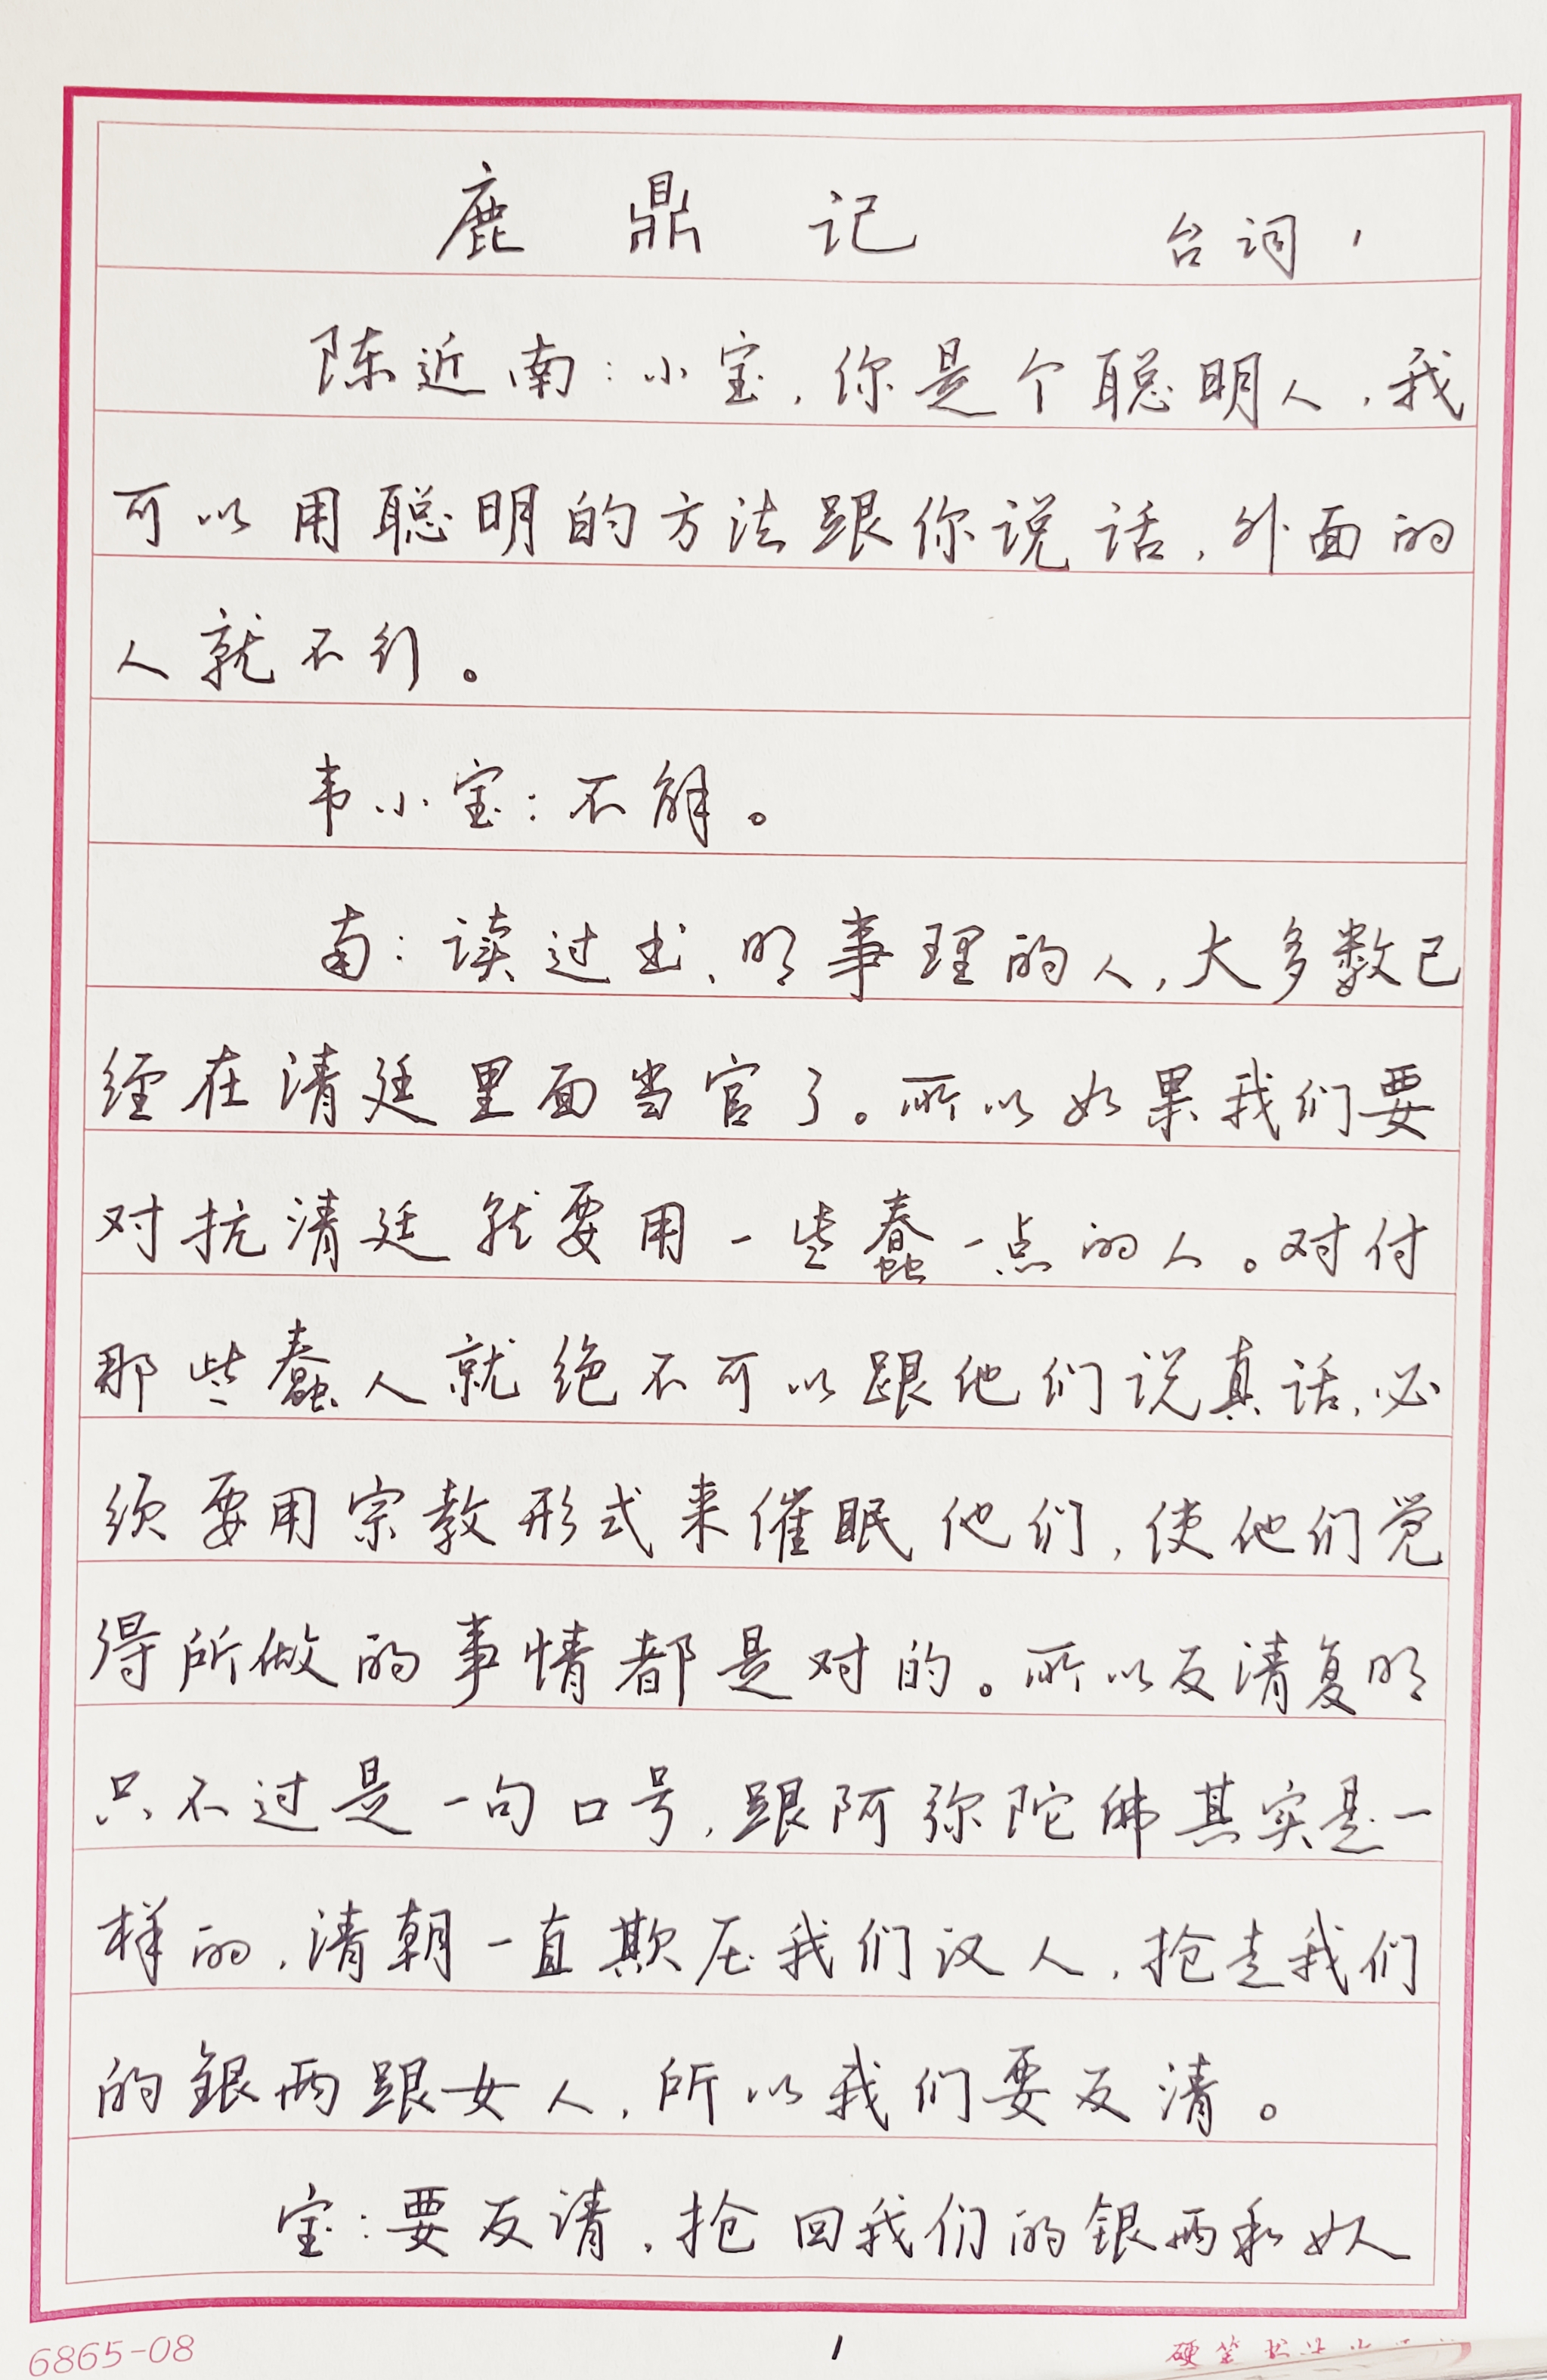 鹿鼎记 台词1
陈近南：小宝，你是个聪明人，我
可以用聪明的方法跟你说话，外面的
人就不行。
韦小宝：不解。
南：读过书、明事理的人，大多数已
经在清廷里面当官了。所以如果我们要
对抗清廷就要用一些蠢一点的人。对付
那些蠢人就绝不可以跟他们说真话，必
须要用宗教形式来催眠他们，使他们觉
得所做的事情都是对的。所以反清复明
只不过是一句口号，跟阿弥陀佛其实是一
样的，清朝一直欺压我们汉人，抢走我们
的银两跟女人，所以我们要反清。
宝：要反清，抢回我们的银两和女人
6865-08
1
硬笔书法